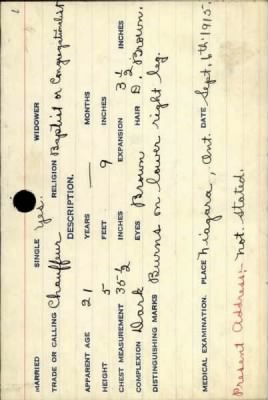 MARRIED SINGLE Yes. WIDOWER
TRADE OR CALLING Chauffeur RELIGION Baptist or Congregationalist
DESCRIPTION.
APPARENT AGE 21 YEARS — MONTHS
HEIGHT 5 FEET 9 INCHES
CHEST MEASUREMENT 35½ INCHES EXPANSION 3½ INCHES
COMPLEXION Dark EYES Brown HAIR D. Brown.
DISTINGUISHING MARKS Burns on lower right leg.
MEDICAL EXAMINATION. PLACE Niagara, Ont. DATE Sept. 6th 1915.
Present Address:- Not stated.